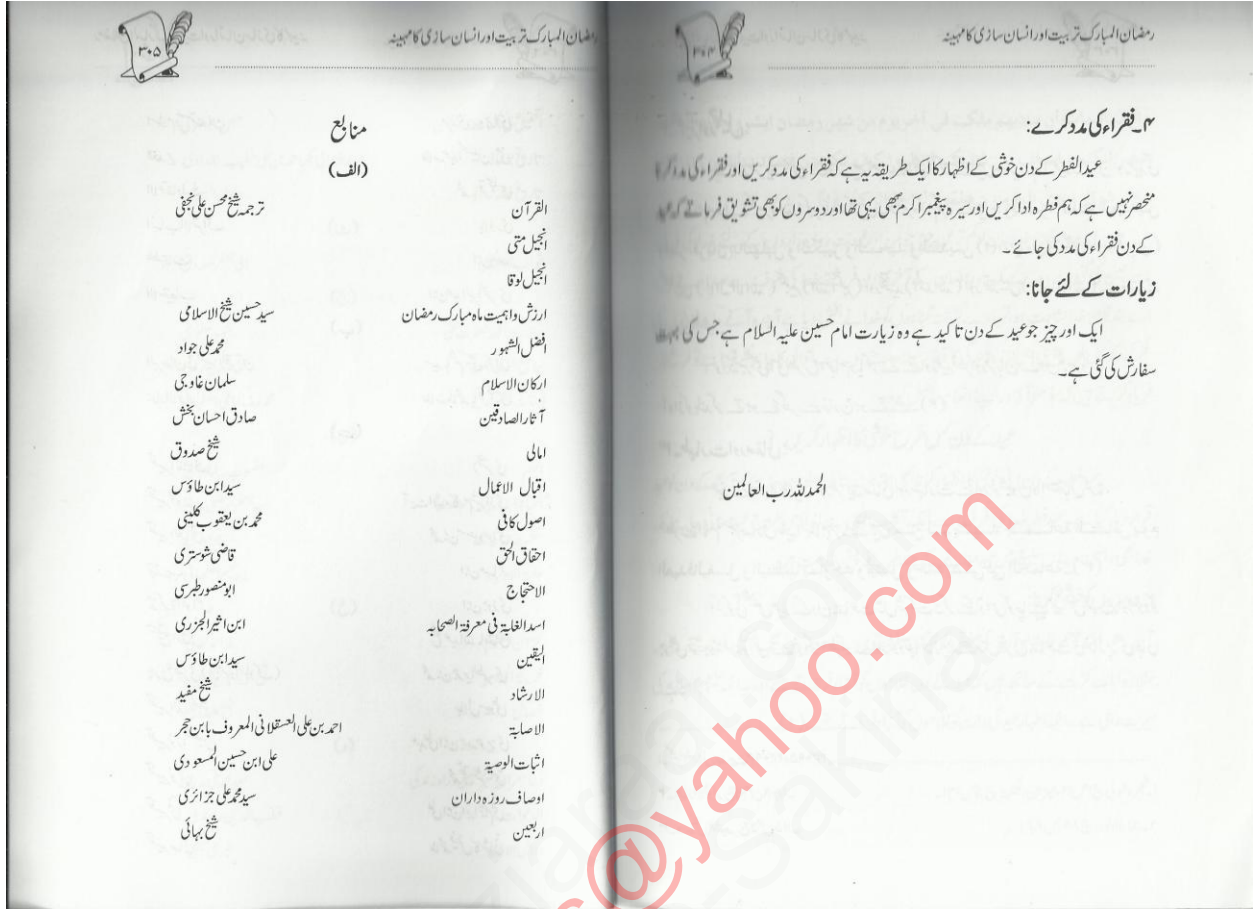 رمضان المبارک تربیت اور انسان سازی کا مہینہ
۳۰۴
۴۔ فقراء کی مدد کرے:
عید الفطر کے دن خوشی کے اظہار کا ایک طریقہ یہ ہے کہ فقراء کی مدد کریں اور فقراء کی مدد کرنا
منحصر نہیں ہے کہ ہم فطرہ ادا کریں اور سیرہ پیغمبر اکرم بھی یہی تھا اور دوسروں کو بھی تشویق فرماتے کہ عید
کے دن فقراء کی مدد کی جائے۔
زیارات کے لئے جانا:
ایک اور چیز جو عید کے دن تاکید ہے وہ زیارت امام حسین علیہ السلام ہے جس کی بہت
سفارش کی گئی ہے۔
الحمد للہ رب العالمین
رمضان المبارک تربیت اور انسان سازی کا مہینہ
۳۰۵
منابع
(الف)
القرآن ترجمہ شیخ محسن علی نجفی
انجیل متی
انجیل لوقا
ارزش و اہمیت ماہ مبارک رمضان سید حسین شیخ الاسلامی
افضل الشہور محمد علی جواد
ارکان الاسلام سلمان غاوجی
آثار الصادقین صادق احسان بخش
امالی شیخ صدوق
اقبال الاعمال سید ابن طاؤس
اصول کافی محمد بن یعقوب کلینی
احقاق الحق قاضی شوستری
الاحتجاج ابو منصور طبرسی
اسد الغابۃ فی معرفۃ الصحابہ ابن اثیر الجزری
الیقین سید ابن طاؤس
الارشاد شیخ مفید
الاصابۃ احمد بن علی العسقلانی المعروف بابن حجر
اثبات الوصیۃ علی ابن حسین المسعودی
اوصاف روزہ داران سید محمد علی جزائری
اربعین شیخ بہائی
s@yahoo.com